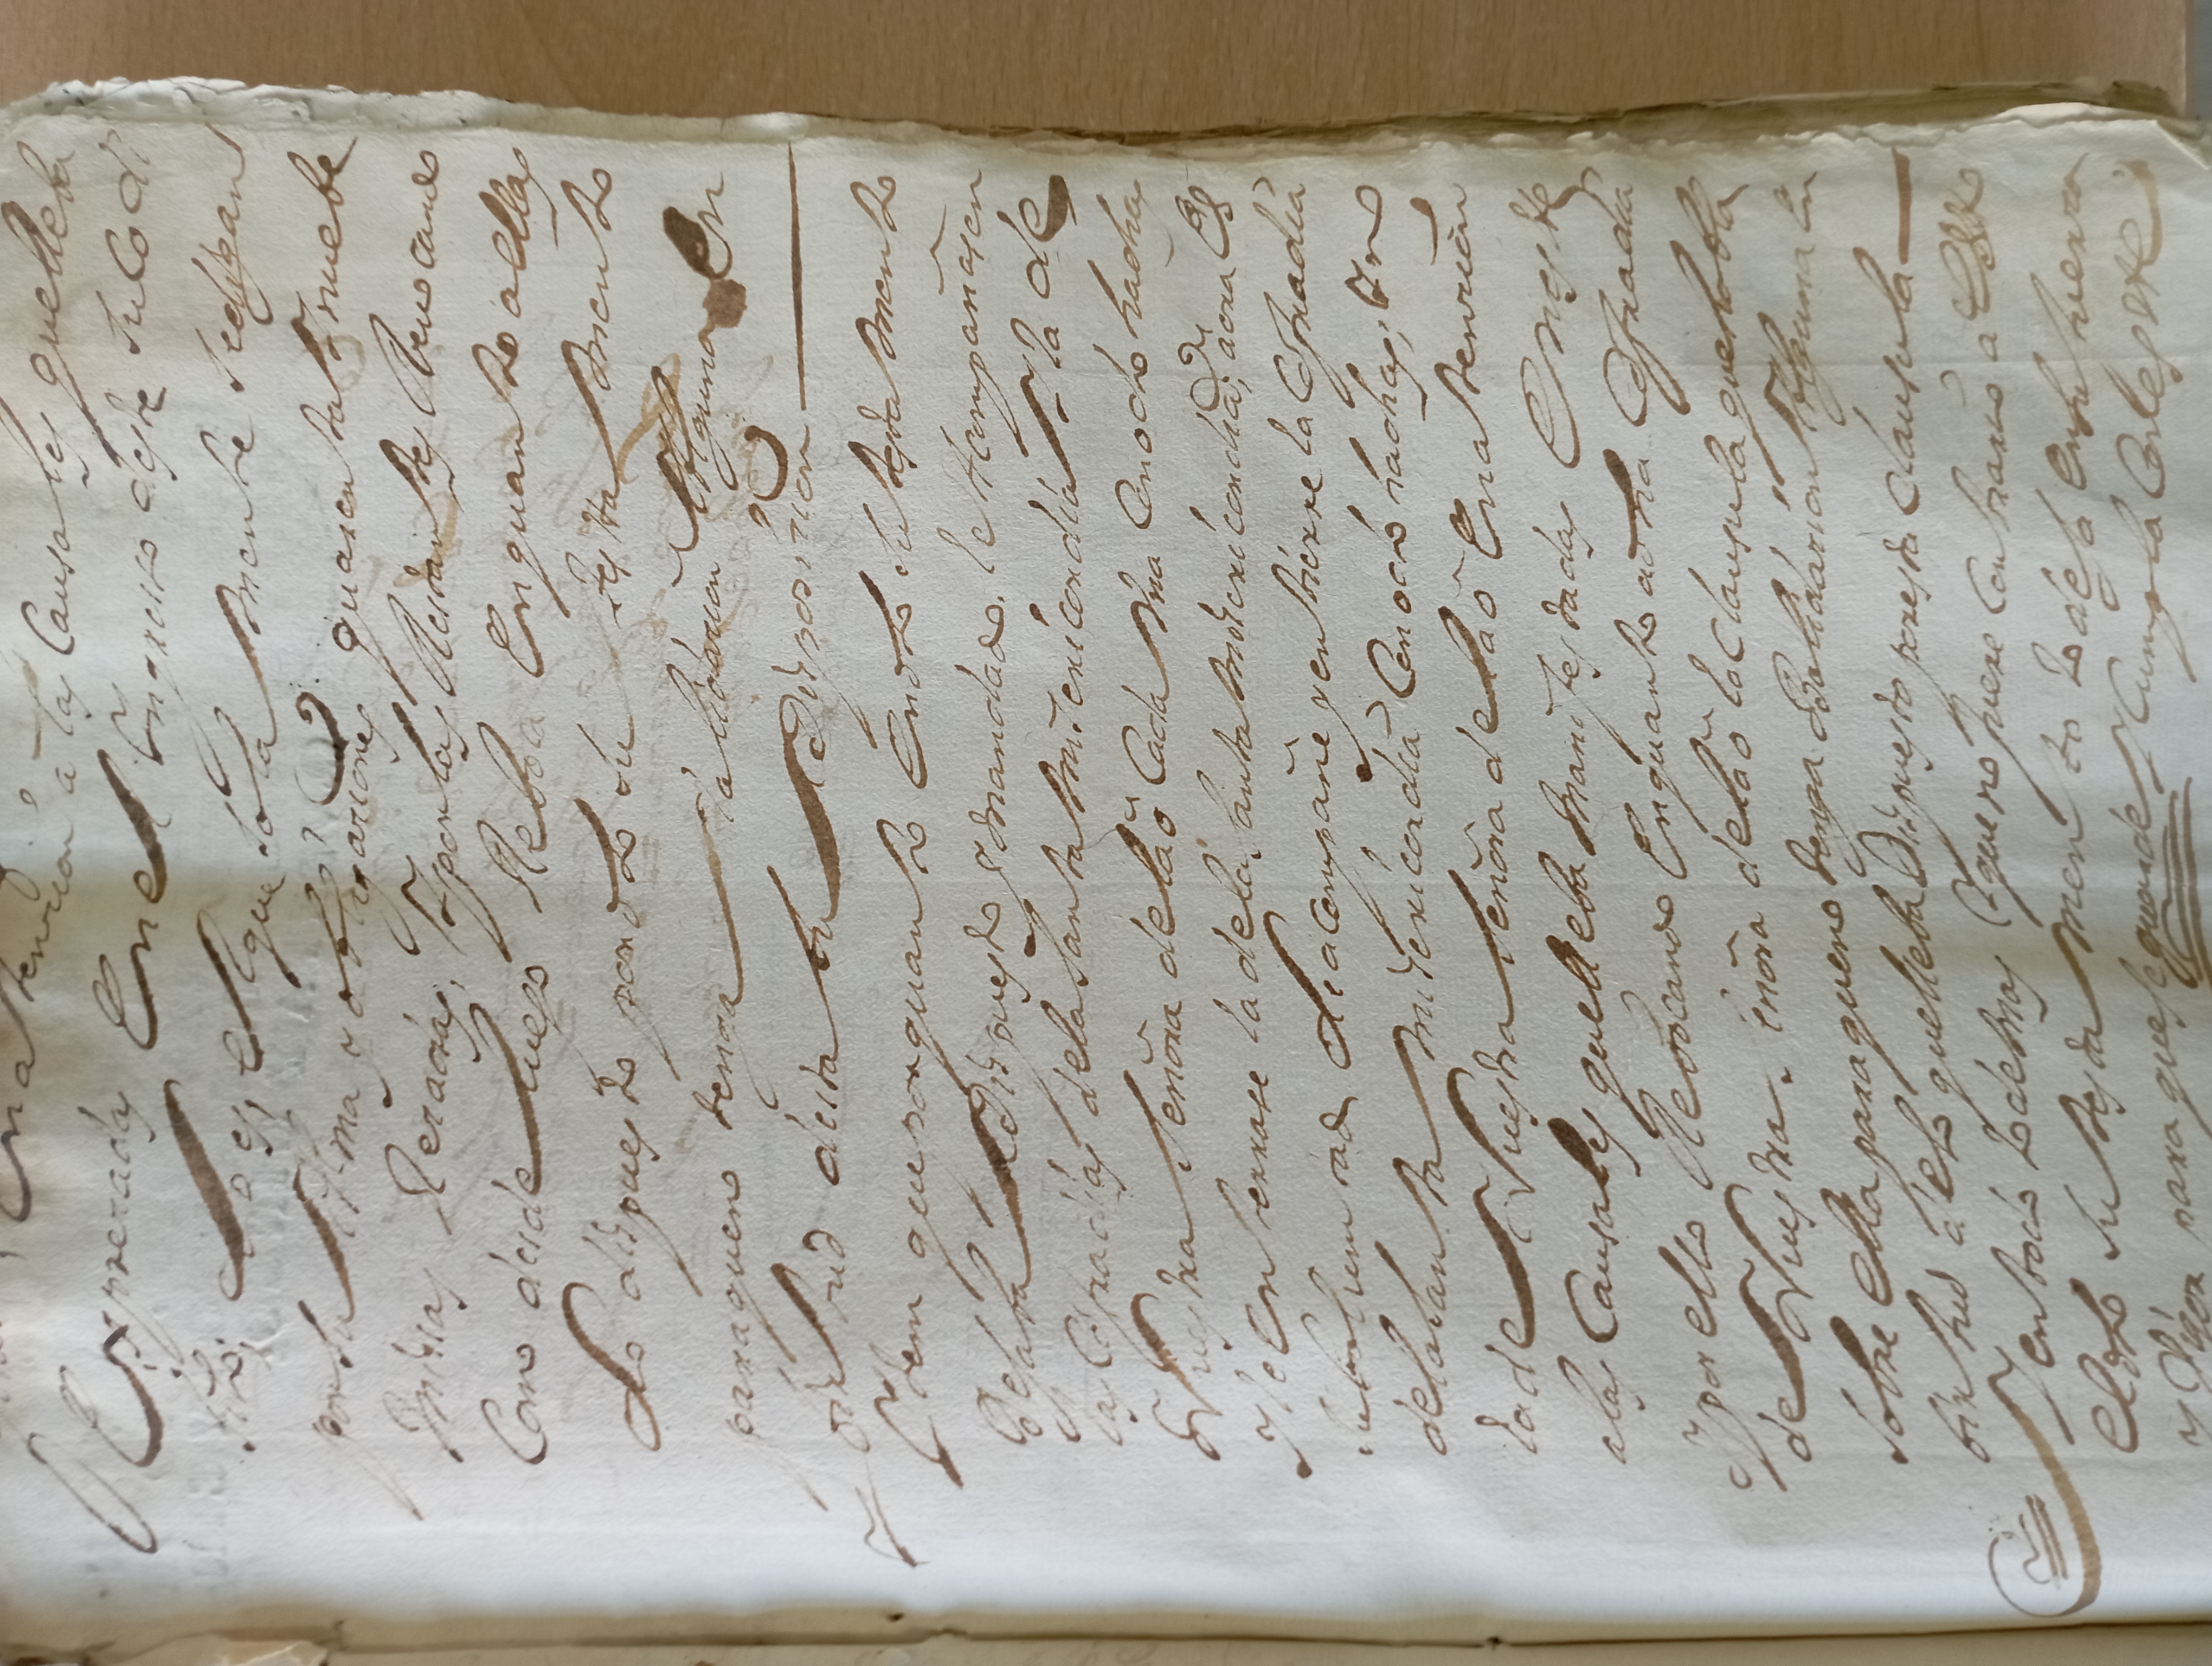 En atencion â las Causales quelleba
Exprezadas En el Yngreso deste su Codi
silo; Lo es, el que sola mente se digan
por su Alma y obligaziones quarenta Y nuebe
missas Rezadas, Y por las Restantes Revocando
Como desde luego Reboca En quanto a ellas
Lo dispuesto por dho su testta mento
para que no tenga balidazion Alguna en
birtud desta su Disposizion
Ytem que por quanto En dho su testa mento
Dejaba Dispuesto y mandado le Acompañasen
las Cofradias dela Santa misericordia Y la de
Nuestra Señora de la ô Cada Vna Con ocho hachas
y le enterrase la dela Santa misericordia; aora Es
su bolumtad Le acompañe y entierre la Cofradia
dela Santa misericordia Con ocho hachas; Y no
la de Nuestra Señora de la ô En atencion
a las Causales quelleba manifestadas En estte
y por ello Revocando En quanto a dha Cofradia
de Nuestra Señora de la ô la Clausula que habla
sobre ella para que no tenga Balidazion Alguna en
birtud de lo quelleba Dispuesto por esta Clausula
Y en todo lo demas Y que no fuere Contrario a Estto
el dho su testa mento lo deja en su fuerza
y Vigor para que se guarde Y Cumpla Con estte